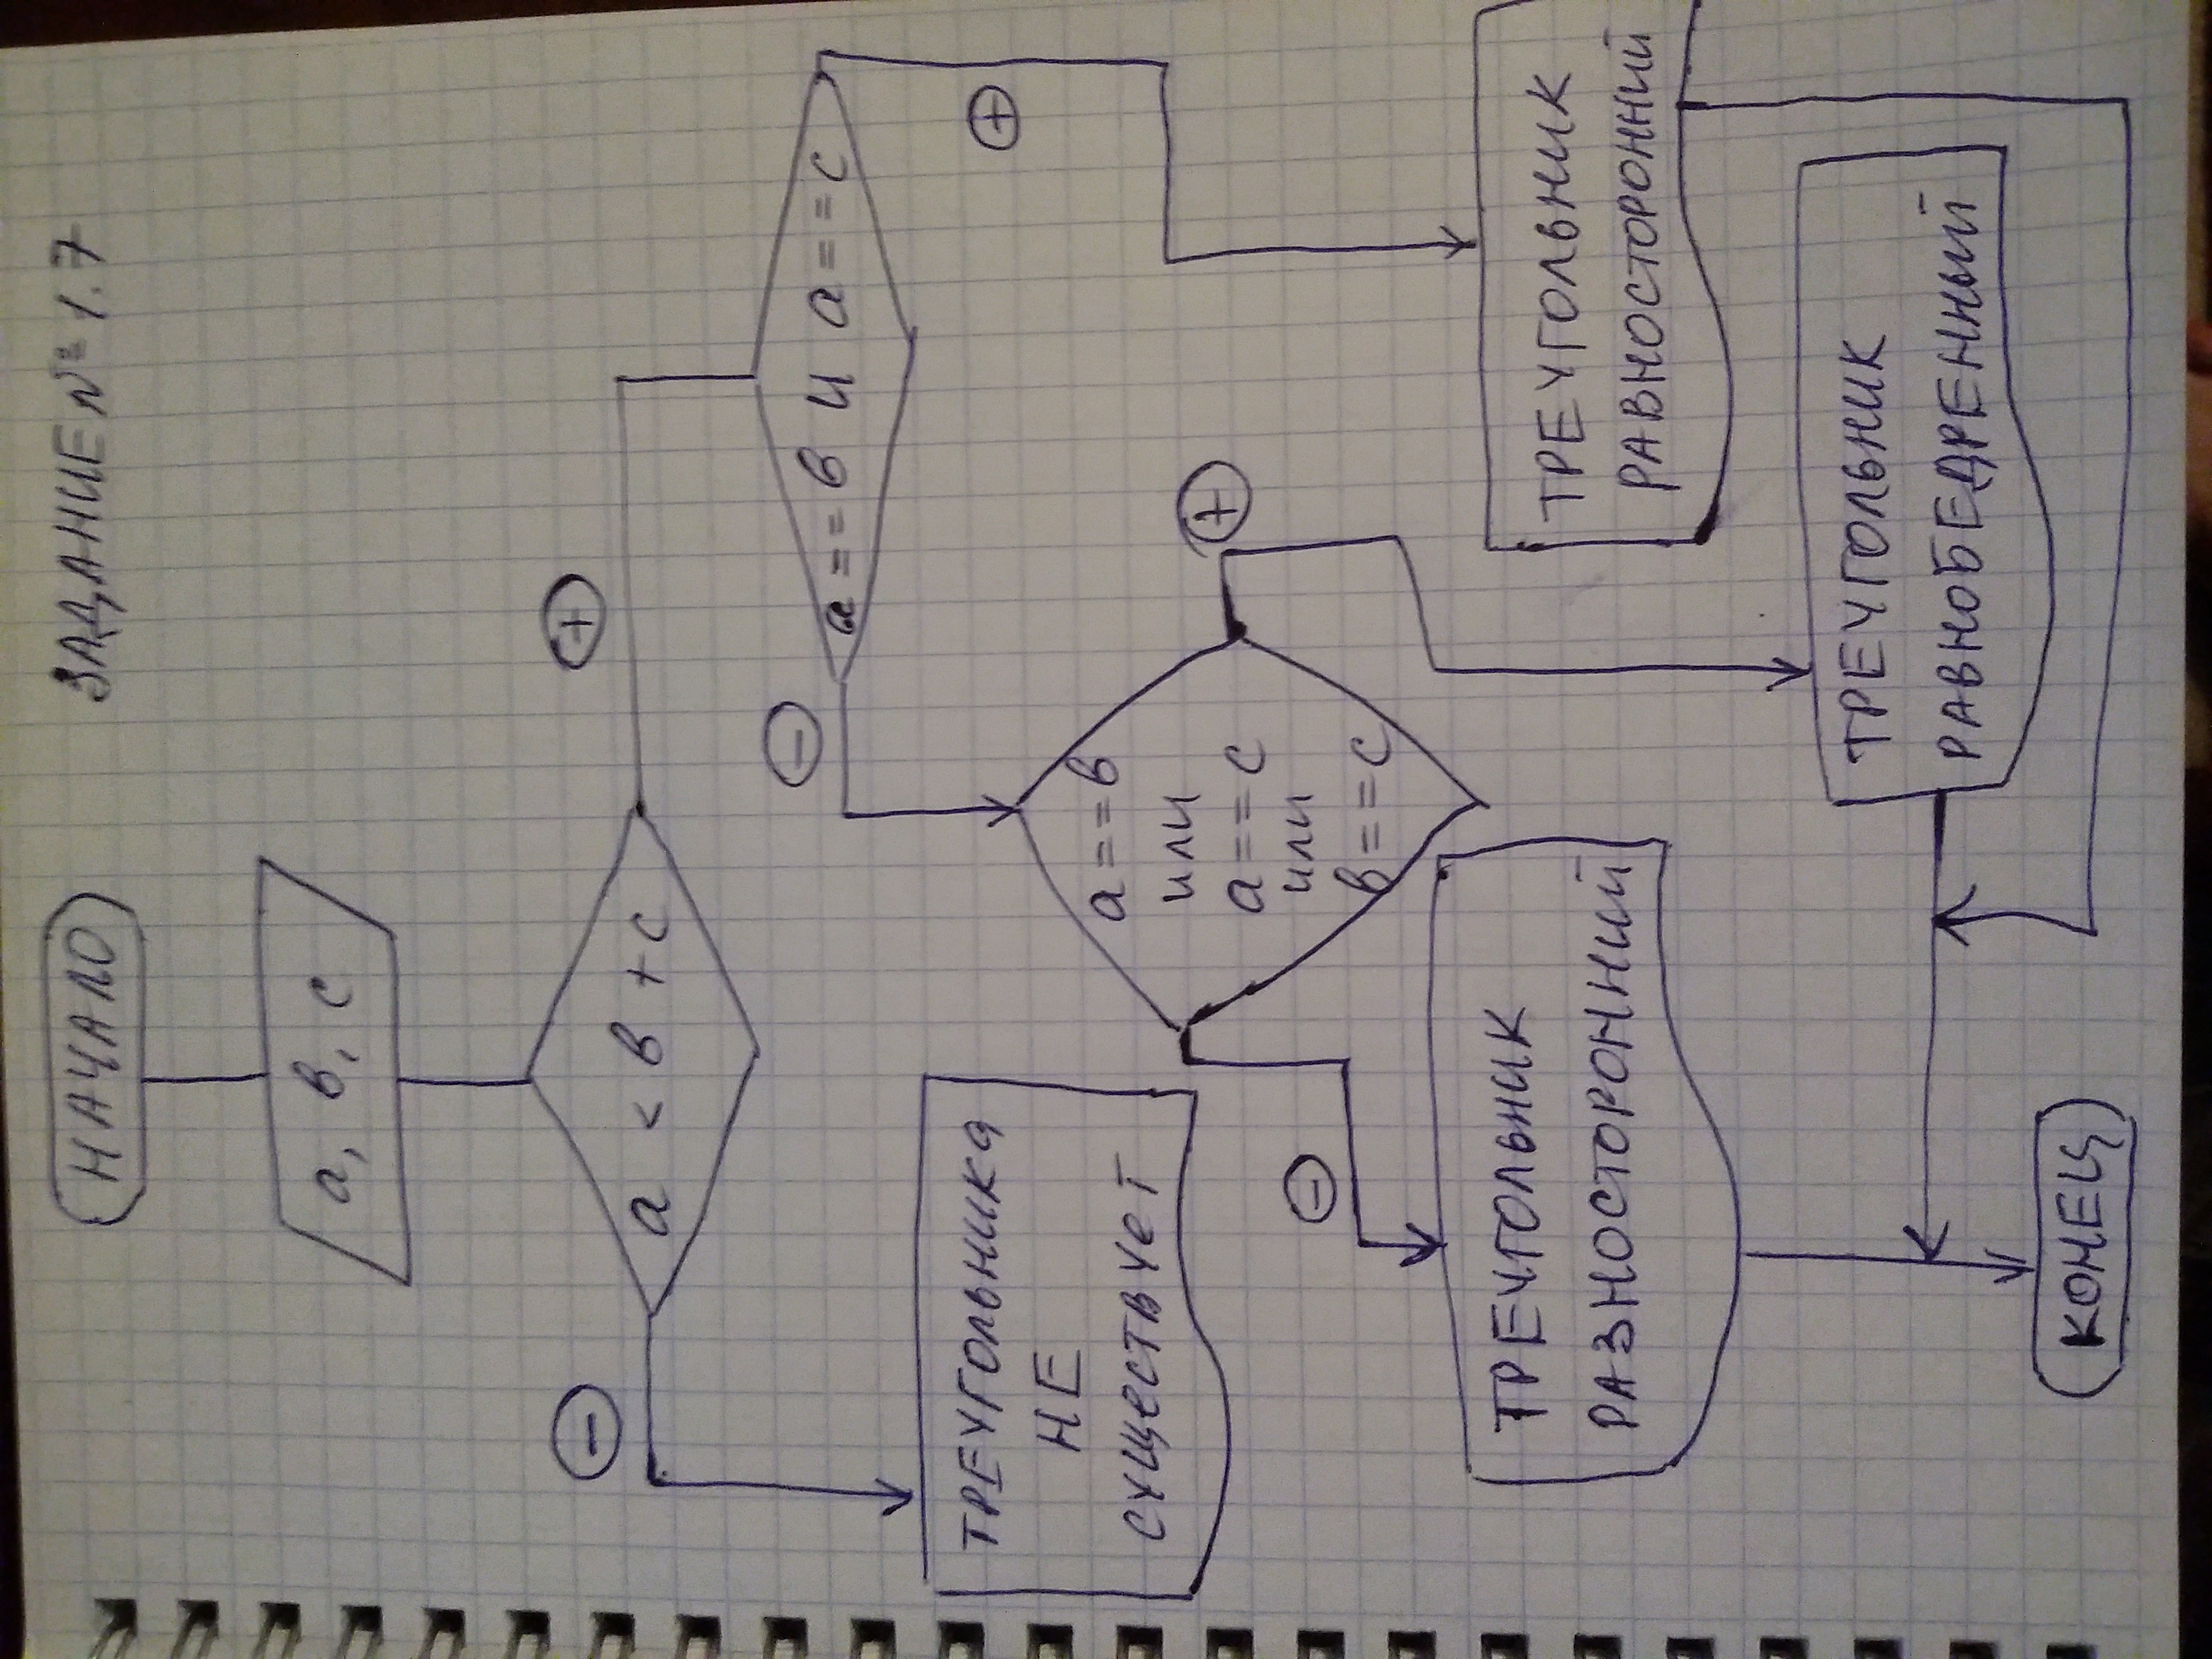 НАЧАЛО
ЗАДАНИЕ № 1.7
а, в, с
−
+
а < в + с
−
а == в и а == с
+
ТРЕУГОЛЬНИКа
НЕ
существует
а == в
или
а == с
или
в == с
+
−
ТРЕУГОЛЬНИК
РАЗНОСТОРОННИЙ
ТРЕУГОЛЬНИК
РАВНОСТОРОННИЙ
ТРЕУГОЛЬНИК
РАВНОБЕДРЕННЫЙ
КОНЕЦ